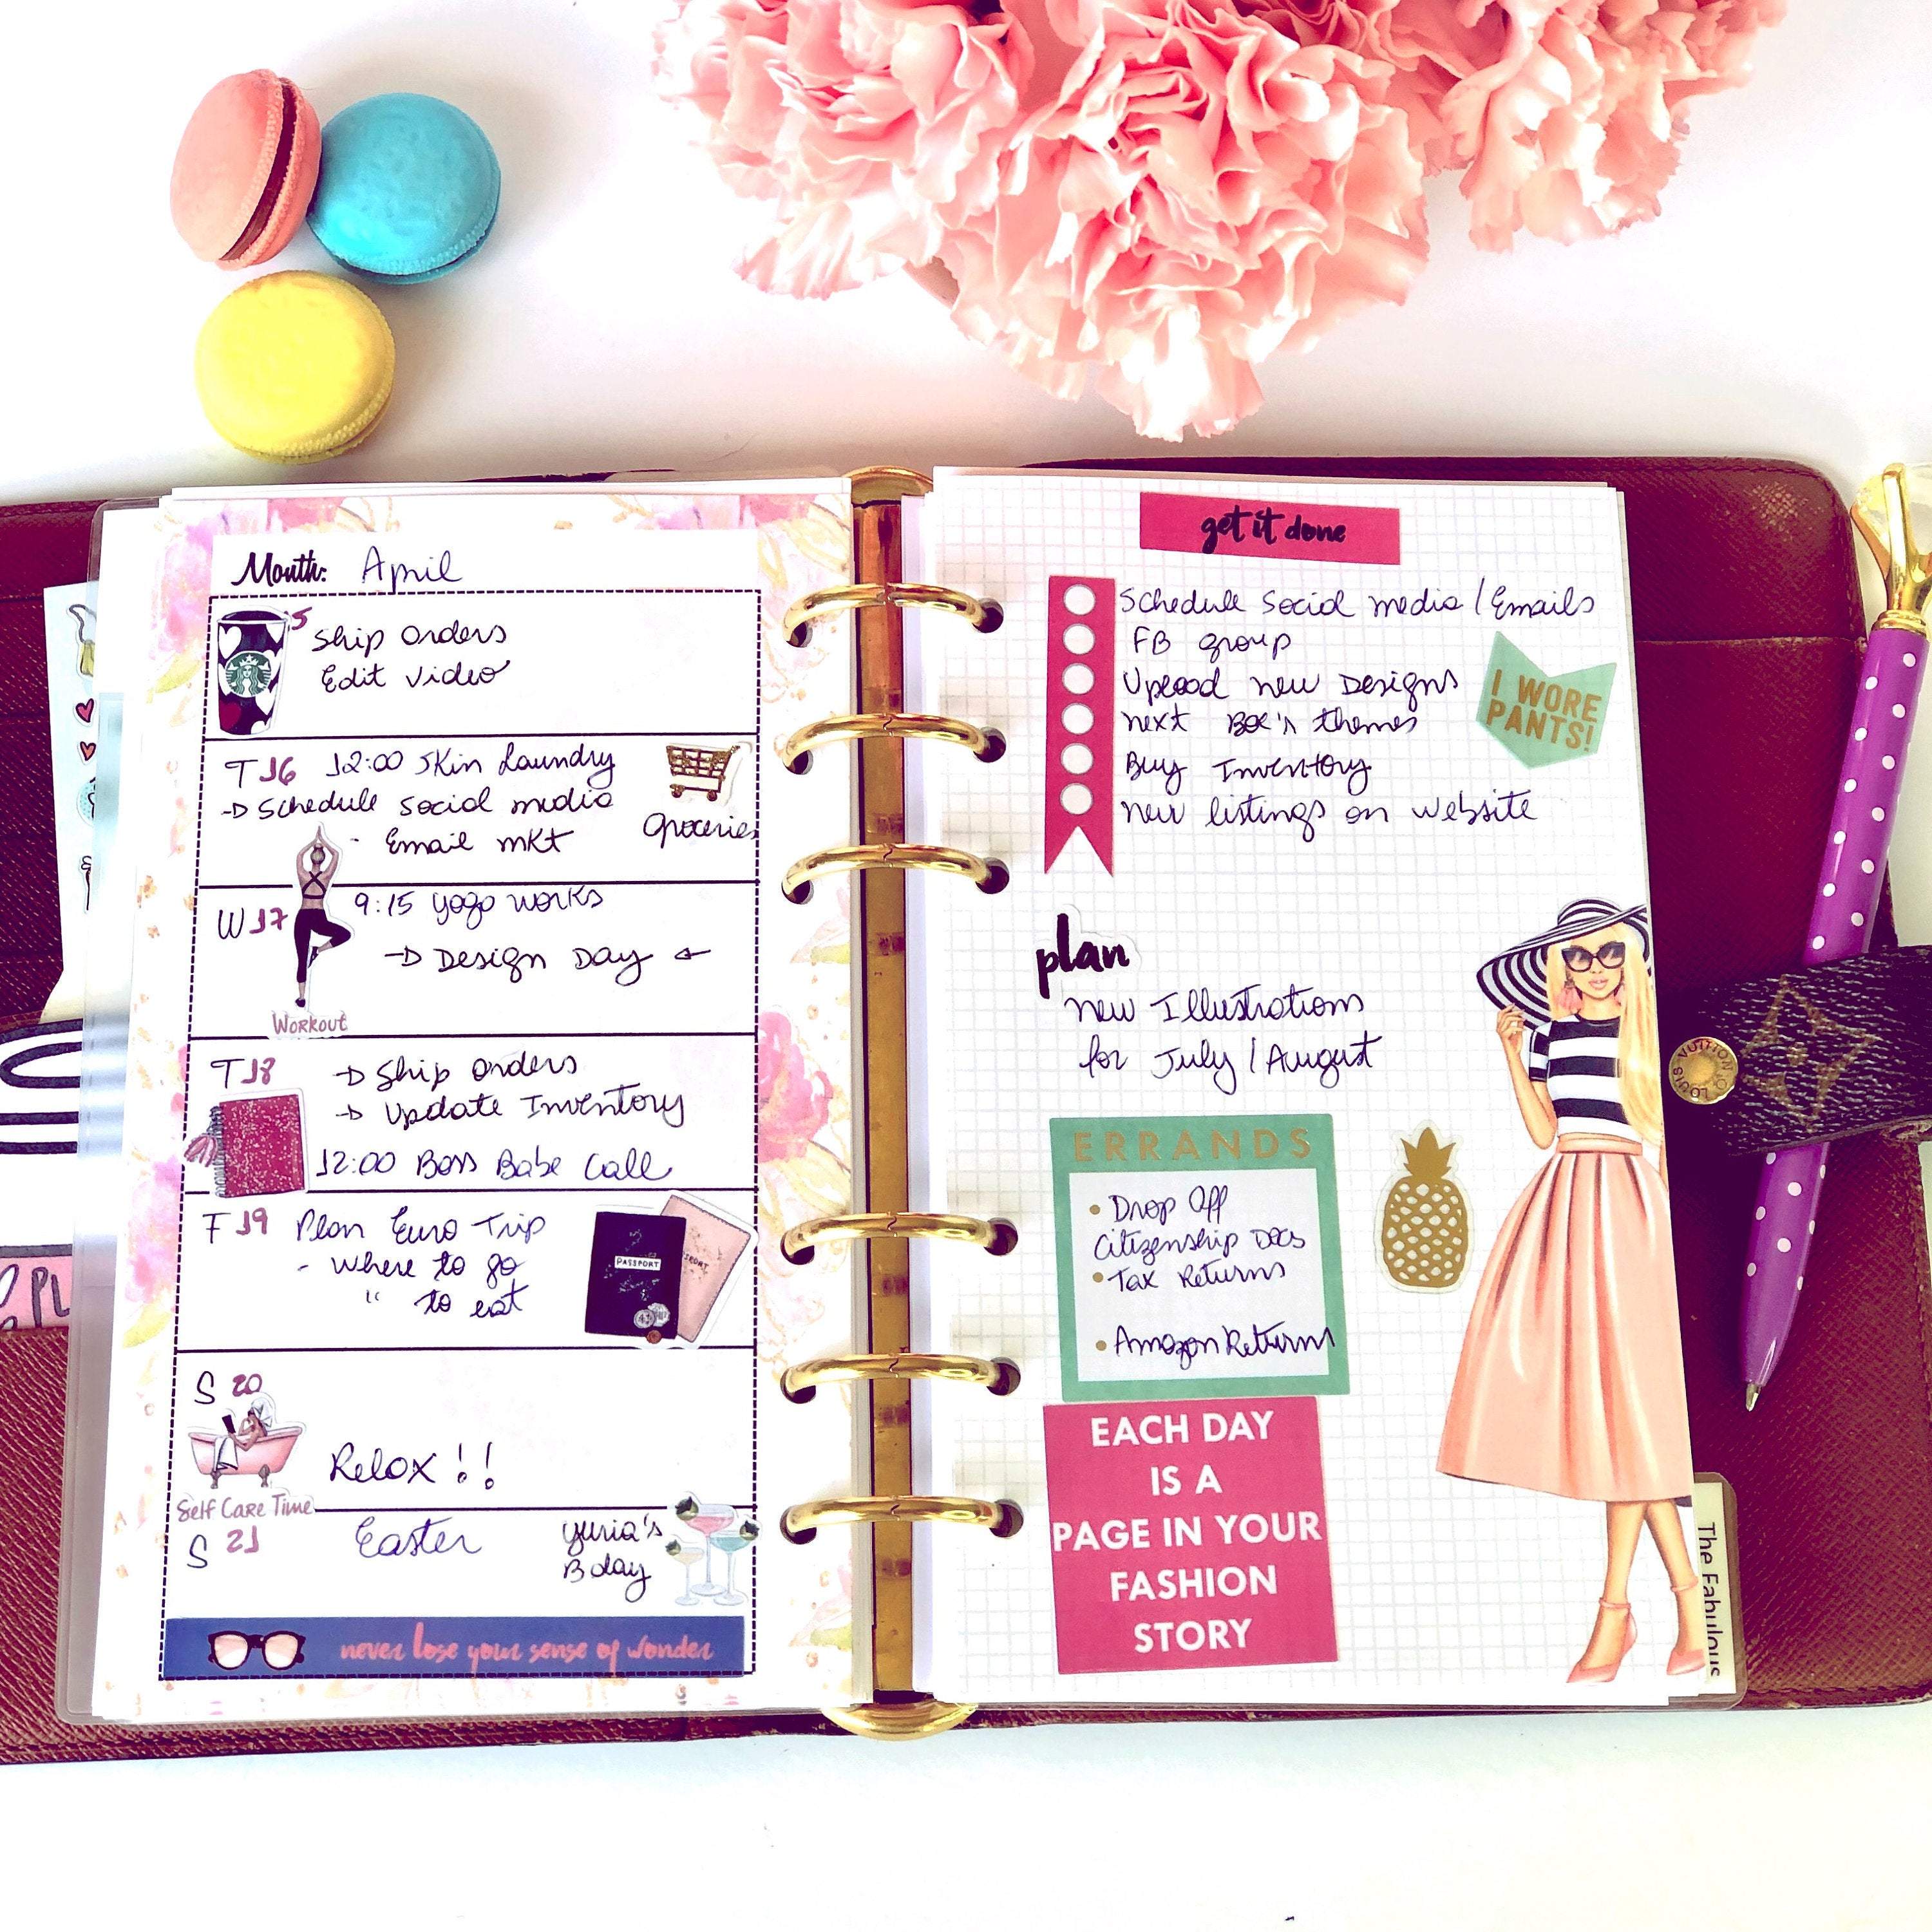 Month: April
5
Ship Orders
Edit Video
T 16 12:00 Skin Laundry
Schedule Social media
- Email mkt
Groceries
W 17 9:15 Yoga Works
Design Day
Workout
T 18 Ship Orders
Update Inventory
12:00 Boss Babe Call
F 19 Plan Euro Trip
- Where to go
" to eat
PASSPORT
S 20
Relax!!
Self Care Time
S 21 Easter Yuria's
Bday
never lose your sense of wonder
get it done
Schedule Social media / Emails
FB group
Upload new Designs
next Box's themes
Buy Inventory
new listings on website
I WORE
PANTS!
plan
new Illustrations
for July / August
ERRANDS
• Drop Off
Citizenship Docs
• Tax Returns
• Amazon Returns
EACH DAY
IS A
PAGE IN YOUR
FASHION
STORY
The Fabulous
LOUIS VUITTON